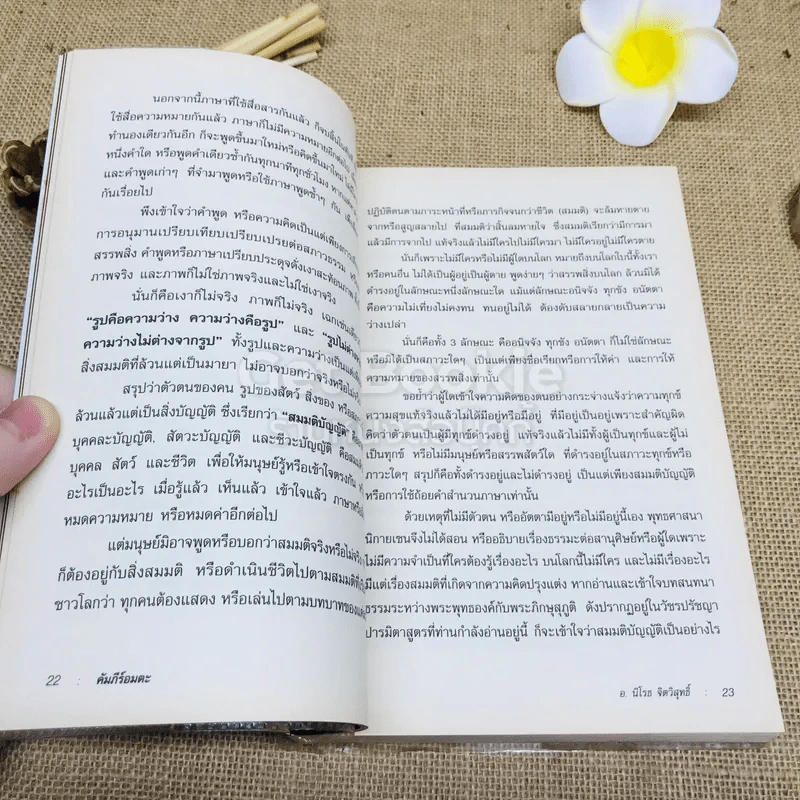 นอกจากนี้ภาษาที่ใช้สื่อสารกันแล้ว ก็จบสิ้นใน
ใช้สื่อความหมายกันแล้ว ภาษาก็ไม่มีความหมายอีกต่อไป
ทำนองเดียวกันอีก ก็จะพูดขึ้นมาใหม่หรือคิดขึ้นมาใหม่
หนึ่งคำใด หรือพูดคำเดียวซ้ำกันทุกนาทีทุกชั่วโมง หาก
และคำพูดเก่าๆ ที่จำมาพูดหรือใช้ภาษาพูดซ้ำๆ กัน
กันเรื่อยไป
พึงเข้าใจว่าคำพูด หรือความคิดเป็นแต่เพียง
การอนุมานเปรียบเทียบเปรียบเปรยต่อสภาวธรรม
สรรพสิ่ง คำพูดหรือภาษาเปรียบประดุจดั่งเงาสะท้อนภาพ
ภาพจริง และภาพก็ไม่ใช่ภาพจริงและไม่ใช่เงาจริง
นั่นก็คือเงาก็ไม่จริง ภาพก็ไม่จริง เฉกเช่นเดียว
“รูปคือความว่าง ความว่างคือรูป” และ “รูปไม่ต่าง
ความว่างไม่ต่างจากรูป” ทั้งรูปและความว่างเป็นแต่เพียง
สิ่งสมมติที่ล้วนแต่เป็นมายา ไม่อาจบอกว่าจริงหรือไม่จริง
สรุปว่าตัวตนของคน รูปของสัตว์ สิ่งของ หรือ
ล้วนแล้วแต่เป็นสิ่งบัญญัติ ซึ่งเรียกว่า “สมมติบัญญัติ”
บุคคละบัญญัติ, สัตวะบัญญัติ และชีวะบัญญัติ คือ
บุคคล สัตว์ และชีวิต เพื่อให้มนุษย์รู้หรือเข้าใจตรงกัน
อะไรเป็นอะไร เมื่อรู้แล้ว เห็นแล้ว เข้าใจแล้ว ภาษา
หมดความหมาย หรือหมดค่าอีกต่อไป
แต่มนุษย์มิอาจพูดหรือบอกว่าสมมติจริงหรือไม่จริง
ก็ต้องอยู่กับสิ่งสมมติ หรือดำเนินชีวิตไปตามสมมติที่
ชาวโลกว่า ทุกคนต้องแสดง หรือเล่นไปตามบทบาทของ
22 : คัมภีร์อมตะ
ปฏิบัติตนตามภาระหน้าที่หรือภารกิจจนกว่าชีวิต (สมมติ) จะล้มหายตาย
จากหรือสูญสลายไป ที่สมมติว่าสิ้นลมหายใจ ซึ่งสมมติเรียกว่ามีการมา
แล้วมีการจากไป แท้จริงแล้วไม่มีใครไปไม่มีใครมา ไม่มีใครอยู่ไม่มีใครตาย
นั่นก็เพราะไม่มีใครหรือไม่มีผู้ใดบนโลก หมายถึงบนโลกใบนี้ทั้งเรา
หรือคนอื่น ไม่ได้เป็นผู้อยู่เป็นผู้ตาย พูดง่ายๆ ว่าสรรพสิ่งบนโลก ล้วนมิได้
ดำรงอยู่ในลักษณะหนึ่งลักษณะใด แม้แต่ลักษณะอนิจจัง ทุกขัง อนัตตา
คือความไม่เที่ยงไม่คงทน ทนอยู่ไม่ได้ ต้องดับสลายกลายเป็นความ
ว่างเปล่า
นั่นก็คือทั้ง 3 ลักษณะ คืออนิจจัง ทุกขัง อนัตตา ก็ไม่ใช่ลักษณะ
หรือมิได้เป็นสภาวะใดๆ เป็นแต่เพียงชื่อเรียกหรือการให้ค่า และการให้
ความหมายของสรรพสิ่งเท่านั้น
ขอย้ำว่าผู้ใดเข้าใจความคิดของตนอย่างกระจ่างแจ้งว่าความทุกข์
ความสุขแท้จริงแล้วไม่ได้มีอยู่หรือมีอยู่ ที่มีอยู่เป็นอยู่เพราะสำคัญผิด
คิดว่าตนเป็นผู้มีทุกข์ดำรงอยู่ แท้จริงแล้วไม่มีทั้งผู้เป็นทุกข์และผู้ไม่
เป็นทุกข์ หรือไม่มีมนุษย์หรือสรรพสัตว์ใด ที่ดำรงอยู่ในสภาวะทุกข์หรือ
ภาวะใดๆ สรุปก็คือทั้งดำรงอยู่และไม่ดำรงอยู่ เป็นแต่เพียงสมมติบัญญัติ
หรือการใช้ถ้อยคำสำนวนภาษาเท่านั้น
ด้วยเหตุที่ไม่มีตัวตน หรืออัตตามีอยู่หรือไม่มีอยู่นี้เอง พุทธศาสนา
นิกายเซนจึงไม่ได้สอน หรืออธิบายเรื่องธรรมะต่อสานุศิษย์หรือผู้ใดเพราะ
ไม่มีความจำเป็นที่ใครต้องรู้เรื่องอะไร บนโลกนี้ไม่มีใคร และไม่มีเรื่องอะไร
มีแต่เรื่องสมมติที่เกิดจากความคิดปรุงแต่ง หากอ่านและเข้าใจบทสนทนา
ธรรมระหว่างพระพุทธองค์กับพระภิกษุสุภูติ ดังปรากฏอยู่ในวัชรปรัชญา
ปารมิตาสูตรที่ท่านกำลังอ่านอยู่นี้ ก็จะเข้าใจว่าสมมติบัญญัติเป็นอย่างไร
อ. นิโรธ จิตวิสุทธิ์ : 23